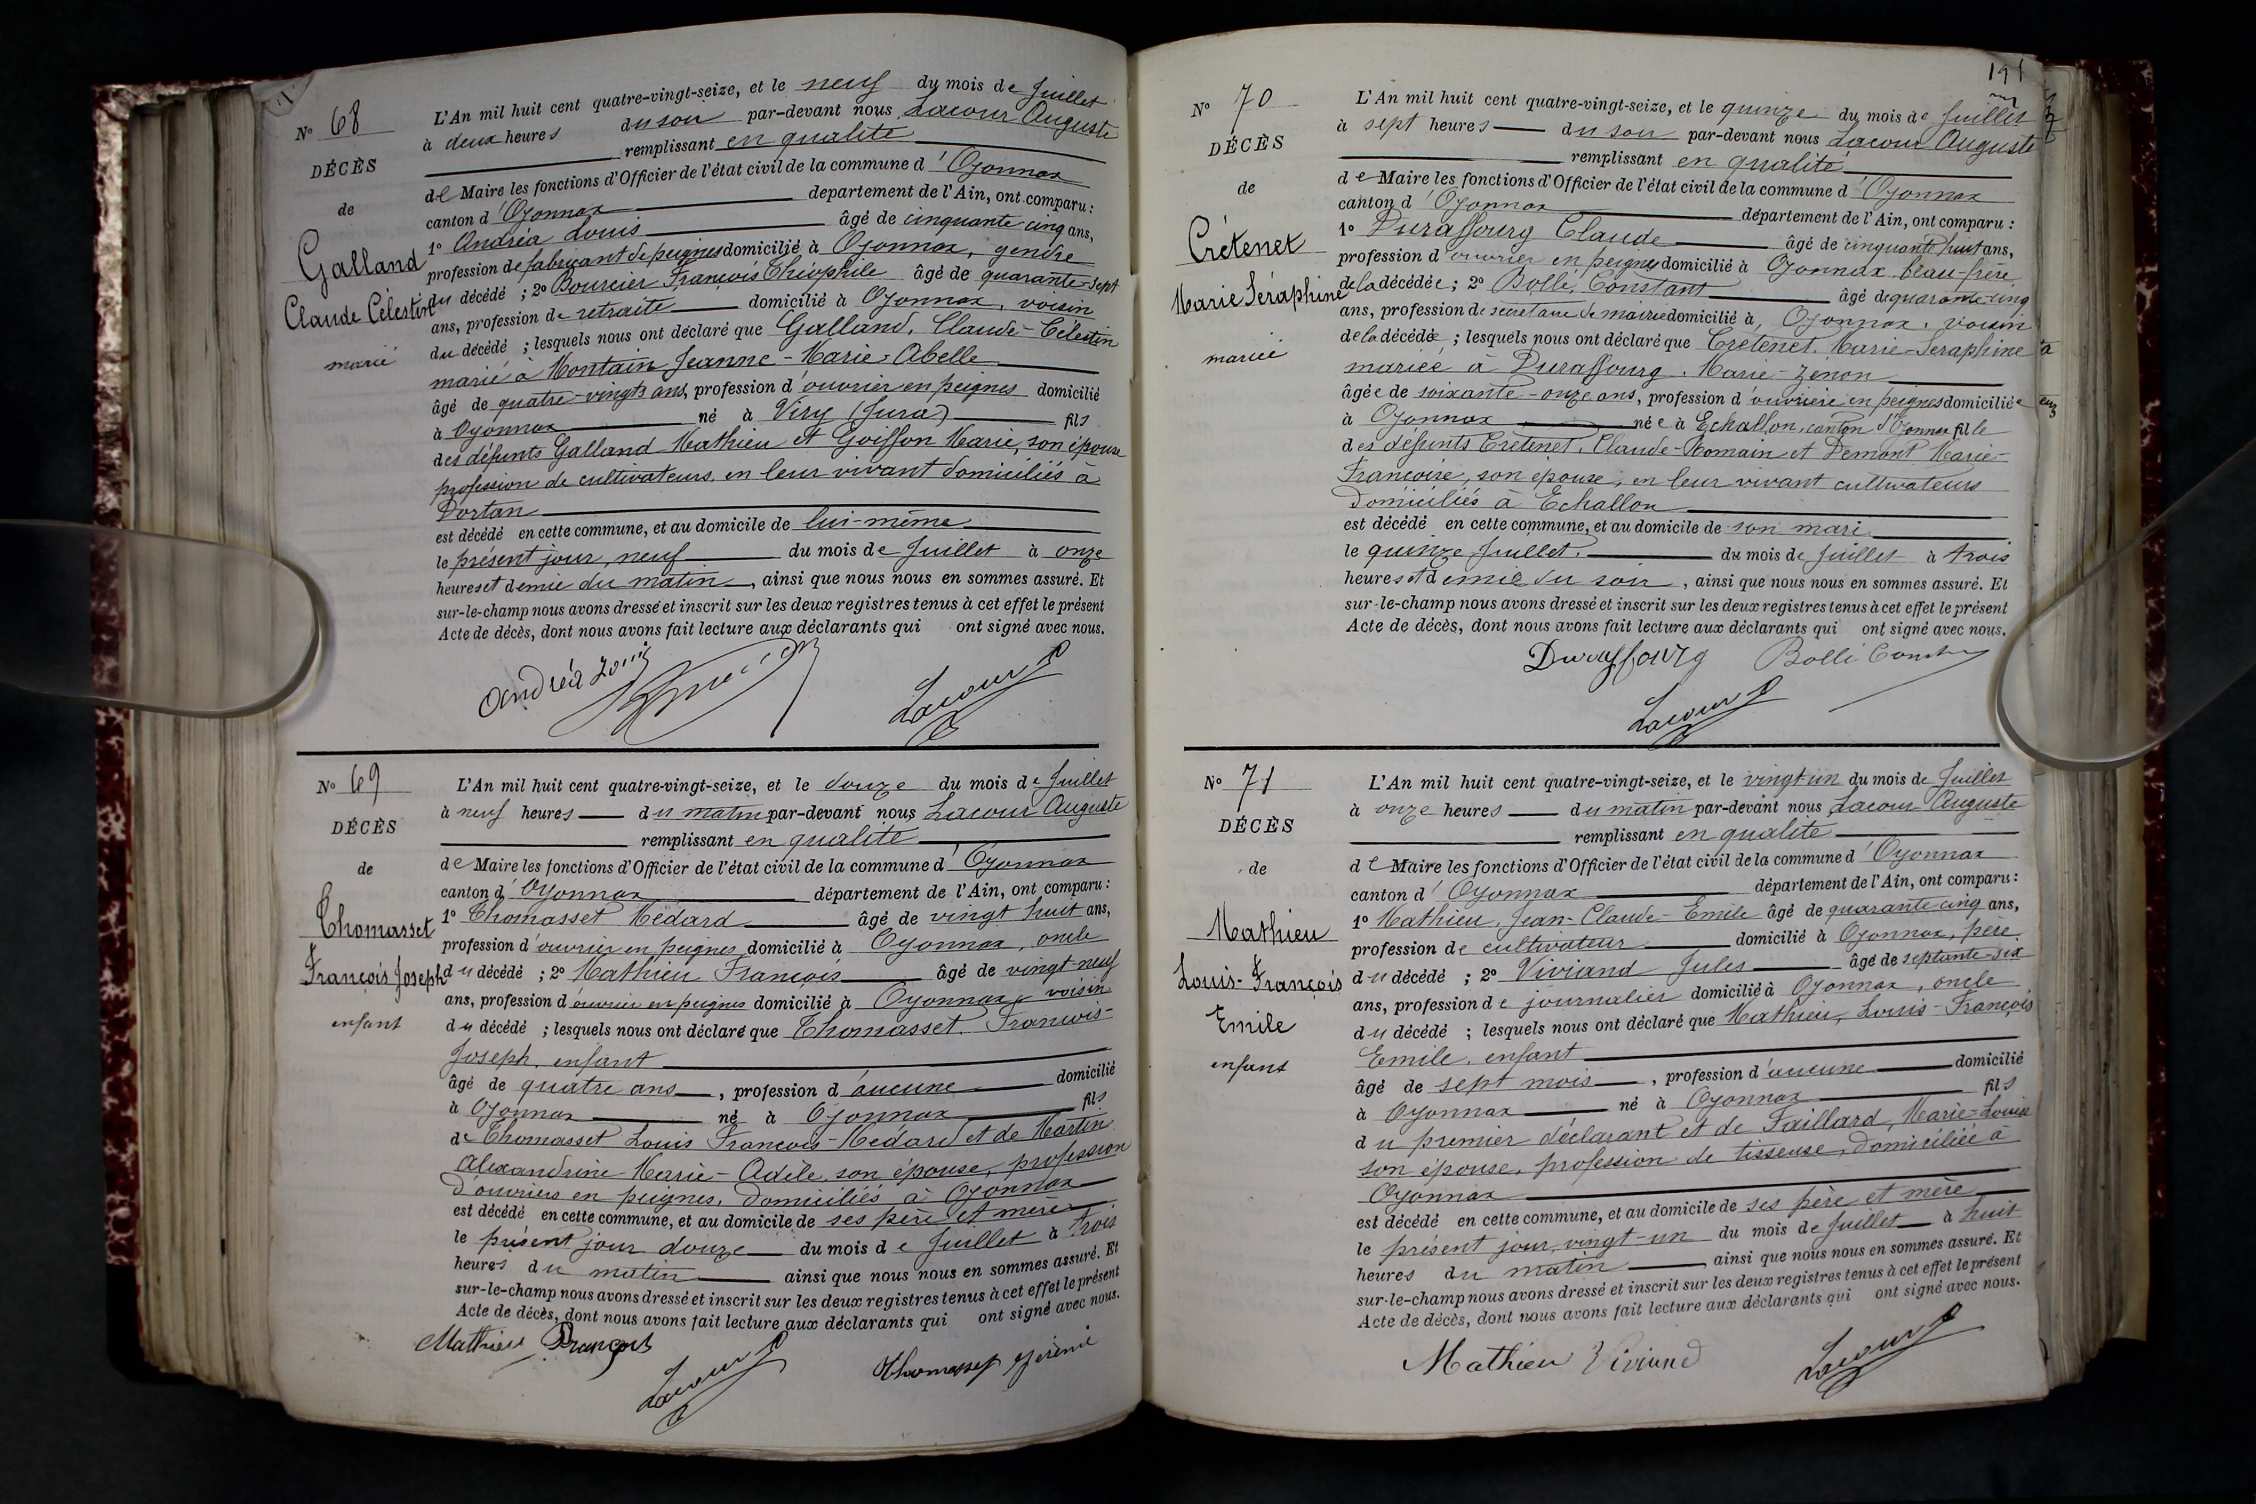 Nº 68
DÉCÈS
de
Galland
Claude Célestin
marié
L'An mil huit cent quatre-vingt-seize, et le neuf du mois de Juillet
à deux heures du soir par-devant nous Lacour Auguste
remplissant en qualité
de Maire les fonctions d'Officier de l'état civil de la commune d'Oyonnax
canton d'Oyonnax département de l'Ain, ont comparu :
1º Andréa Louis âgé de cinquante cinq ans,
profession de fabricant de peignes domicilié à Oyonnax, gendre
du décédé ; 2º Bourcier François Théophile âgé de quarante-sept
ans, profession de retraité domicilié à Oyonnax, voisin
du décédé ; lesquels nous ont déclaré que Galland, Claude-Célestin
marié à Montain Jeanne-Marie-Abelle
âgé de quatre-vingts ans, profession d'ouvrier en peignes domicilié
à Oyonnax né à Viry (Jura) fils
des défunts Galland Mathieu et Goiffon Marie, son épouse
profession de cultivateurs en leur vivant domiciliés à
Dortan
est décédé en cette commune, et au domicile de lui-même
le présent jour, neuf du mois de Juillet à onze
heures et demie du matin, ainsi que nous nous en sommes assuré. Et
sur-le-champ nous avons dressé et inscrit sur les deux registres tenus à cet effet le présent
Acte de décès, dont nous avons fait lecture aux déclarants qui ont signé avec nous.
Andréa Louis
Lacour
Nº 69
DÉCÈS
de
Thomasset
François Joseph
enfant
L'An mil huit cent quatre-vingt-seize, et le douze du mois de Juillet
à neuf heures du matin par-devant nous Lacour Auguste
remplissant en qualité
de Maire les fonctions d'Officier de l'état civil de la commune d'Oyonnax
canton d'Oyonnax département de l'Ain, ont comparu :
1º Thomasset Médard âgé de vingt huit ans,
profession d'ouvrier en peignes domicilié à Oyonnax, oncle
du décédé ; 2º Mathieu François âgé de vingt-neuf
ans, profession d'ouvrier en peignes domicilié à Oyonnax, voisin
du décédé ; lesquels nous ont déclaré que Thomasset François-
Joseph, enfant
âgé de quatre ans, profession d'aucune domicilié
à Oyonnax né à Oyonnax fils
de Thomasset Louis François-Médard et de Martin
Alexandrine-Marie-Adèle, son épouse, profession
d'ouvriers en peignes, domiciliés à Oyonnax
est décédé en cette commune, et au domicile de ses père et mère
le présent jour douze du mois de Juillet à trois
heures du matin ainsi que nous nous en sommes assuré. Et
sur-le-champ nous avons dressé et inscrit sur les deux registres tenus à cet effet le présent
Acte de décès, dont nous avons fait lecture aux déclarants qui ont signé avec nous.
Mathieu François
Lacour
Thomasset
191
Nº 70
DÉCÈS
de
Crétenet
Marie Séraphine
mariée
L'An mil huit cent quatre-vingt-seize, et le quinze du mois de Juillet
à sept heures du soir par-devant nous Lacour Auguste
remplissant en qualité
de Maire les fonctions d'Officier de l'état civil de la commune d'Oyonnax
canton d'Oyonnax département de l'Ain, ont comparu :
1º Duraffourg Claude âgé de cinquante huit ans,
profession d'ouvrier en peignes domicilié à Oyonnax beau-frère
de la décédée ; 2º Bollé Constant âgé de quarante-cinq
ans, profession de secrétaire de mairie domicilié à Oyonnax, voisin
de la décédée ; lesquels nous ont déclaré que Crétenet, Marie-Séraphine
mariée à Duraffourg, Marie-Zénon
âgée de soixante-onze ans, profession d'ouvrière en peignes domiciliée
à Oyonnax née à Echallon, canton d'Oyonnax fille
des défunts Crétenet, Claude-Romain et Demont Marie-
Françoise, son épouse, en leur vivant cultivateurs
domiciliés à Echallon
est décédé en cette commune, et au domicile de son mari
le quinze Juillet du mois de Juillet à trois
heures et demie du soir, ainsi que nous nous en sommes assuré. Et
sur-le-champ nous avons dressé et inscrit sur les deux registres tenus à cet effet le présent
Acte de décès, dont nous avons fait lecture aux déclarants qui ont signé avec nous.
Duraffourg Bollé Constant
Lacour
Nº 71
DÉCÈS
de
Mathieu
Louis-François
Emile
enfant
L'An mil huit cent quatre-vingt-seize, et le vingt un du mois de Juillet
à onze heures du matin par-devant nous Lacour Auguste
remplissant en qualité
de Maire les fonctions d'Officier de l'état civil de la commune d'Oyonnax
canton d'Oyonnax département de l'Ain, ont comparu :
1º Mathieu, Jean-Claude-Emile âgé de quarante cinq ans,
profession de cultivateur domicilié à Oyonnax, père
du décédé ; 2º Viviand Jules âgé de septante-six
ans, profession de journalier domicilié à Oyonnax, oncle
du décédé ; lesquels nous ont déclaré que Mathieu, Louis-François
Emile, enfant
âgé de sept mois, profession d'aucune domicilié
à Oyonnax né à Oyonnax fils
du premier déclarant et de Faillard, Marie-Louise
son épouse, profession de tisseuse, domiciliée à
Oyonnax
est décédé en cette commune, et au domicile de ses père et mère
le présent jour, vingt-un du mois de Juillet à huit
heures du matin, ainsi que nous nous en sommes assuré. Et
sur-le-champ nous avons dressé et inscrit sur les deux registres tenus à cet effet le présent
Acte de décès, dont nous avons fait lecture aux déclarants qui ont signé avec nous.
Mathieu Viviand
Lacour